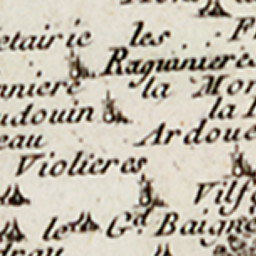 etairie les
Raguaniere
la
udouin la
eau Ardoue
Violieres
Vilf
le Gd Baigne